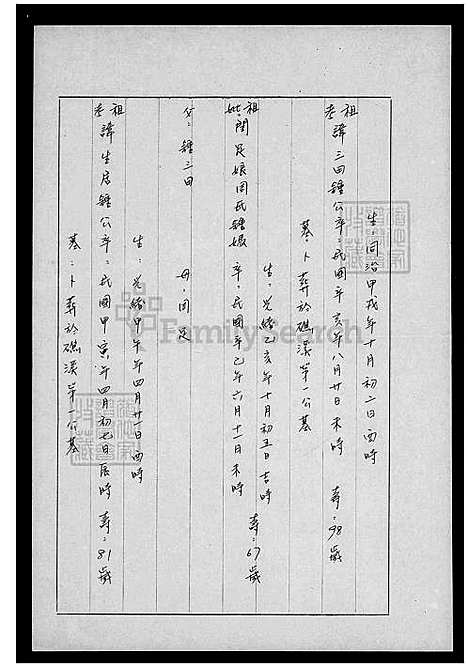 生：同治甲戌年十月初二日酉時
祖考 諱三田鍾公 卒：民國辛亥年八月廿日未時 壽：98歲
墓：卜葬於礁溪第一公墓
生：光緒乙亥年十月初五日吉時
祖妣 閏足娘周氏鍾媽 卒：民國辛巳年六月十一日未時 壽：67歲
父：鍾三田 母：周足
生：光緒甲午年四月廿一日酉時
祖考 諱生居鍾公 卒：民國甲寅年四月初七日辰時 壽：81歲
墓：卜葬於礁溪第一公墓
FamilySearch